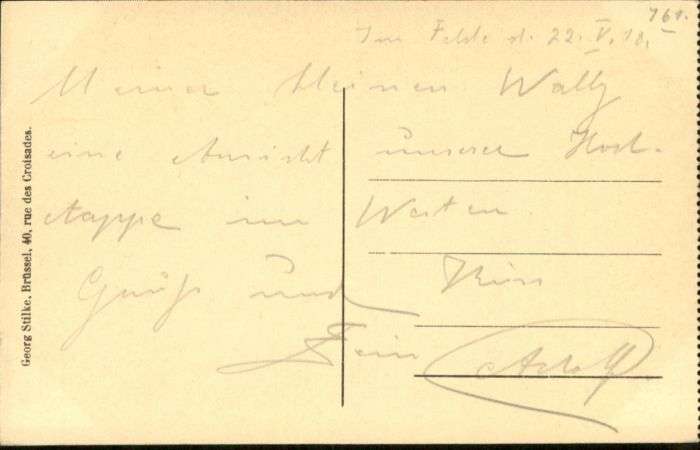 761.
Im Felde d. 22. V. 18.
Meiner kleinen Wally
eine Ansicht unserer
etappe im Westen
Gruß und Kuss
Dein Adolf.
Georg Stilke, Brüssel, 40, rue des Croisades.